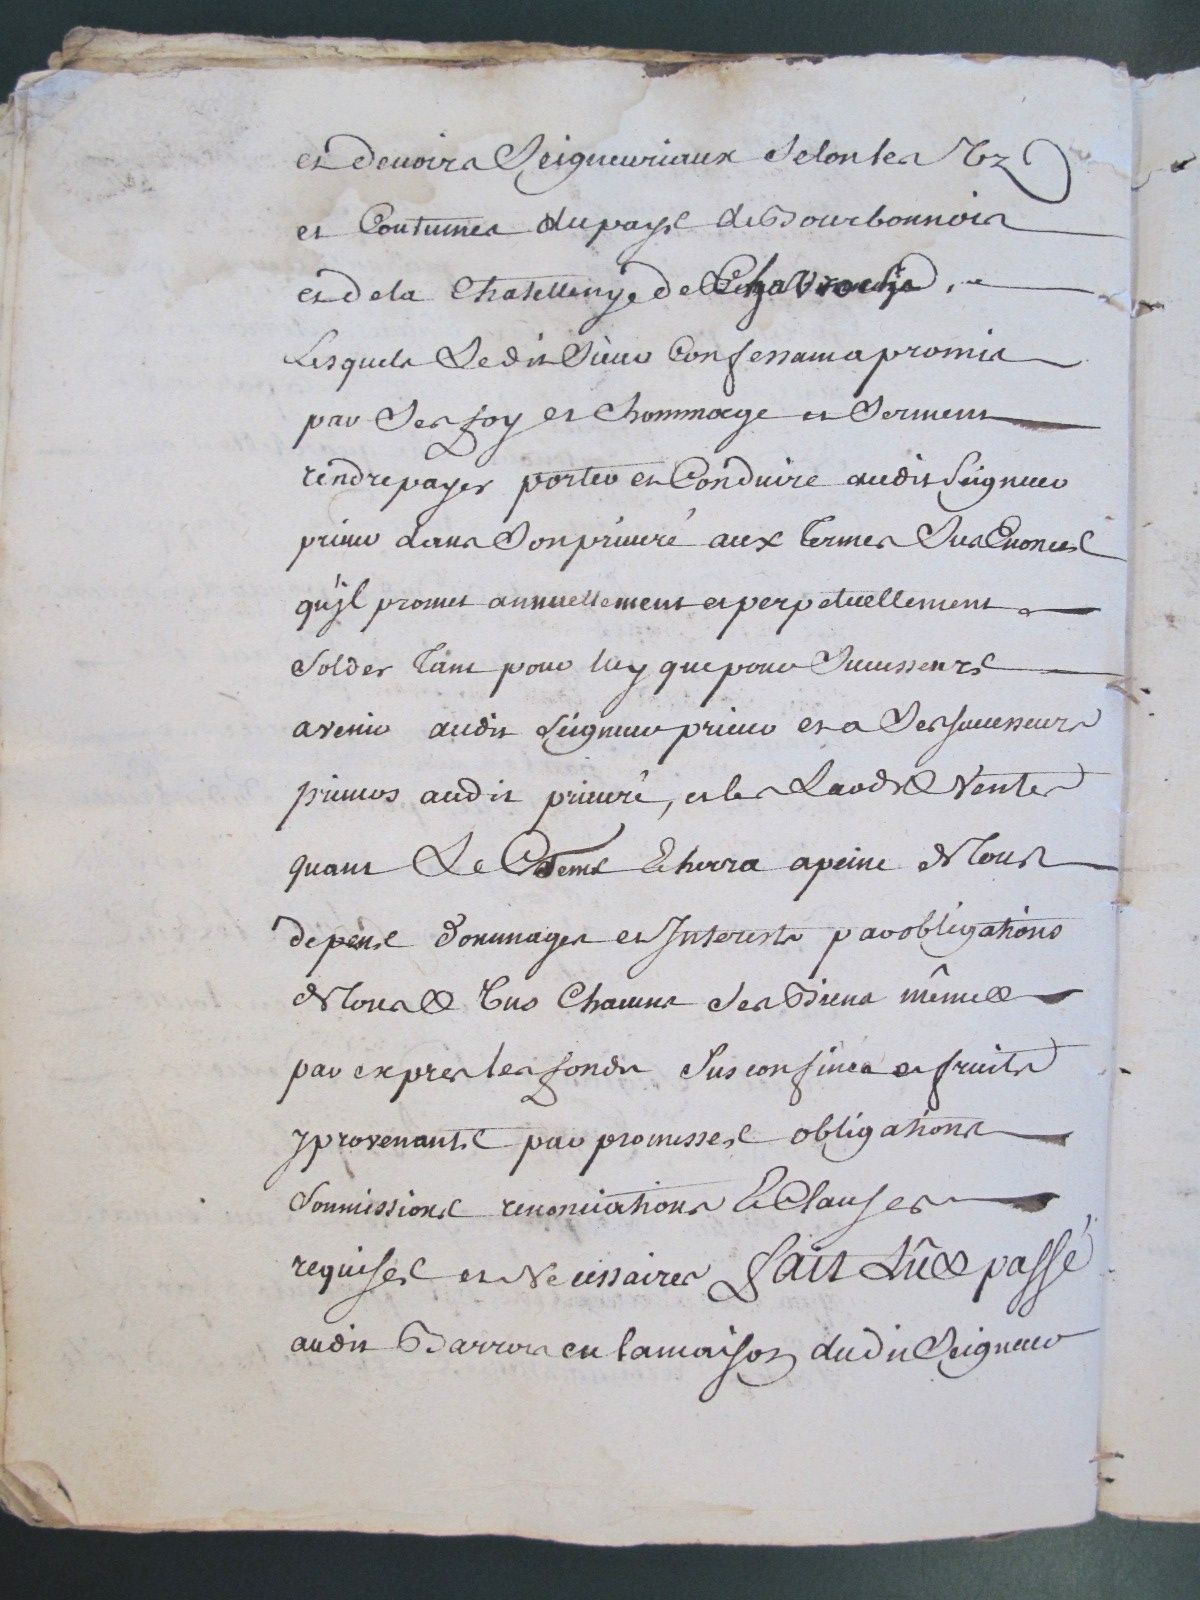 et devoirs Seigneuriaux selon les Uz
et Coutumes du pays de Bourbonnois
et de la Chatellenye de Chavroche,
Lesquels ledit Sieur Confessant a promis
par Ses foy et hommage et Serment
rendre payer porter et Conduire audit Seigneur
prieur dans Son prieuré aux termes Sus Enoncés
qu'jl promet annuellement et perpetuellement
Solder tant pour luy que pour Successeurs
avenir audit Seigneur prieur et a Ses successeurs
prieurs audit prieuré, et les Laods & Ventes
quant Le Cas Echerra a peine de tous
depens dommages et Interests par obligations
de tous & Uns Chacuns Ses Biens même &
par expres les fonds Sus confinés et fruits
y provenants par promesses obligations
Soumissions renonciations & Clauses
requises et Necessaires fait Lû & passé
audit Barrois en la maison dudit Seigneur